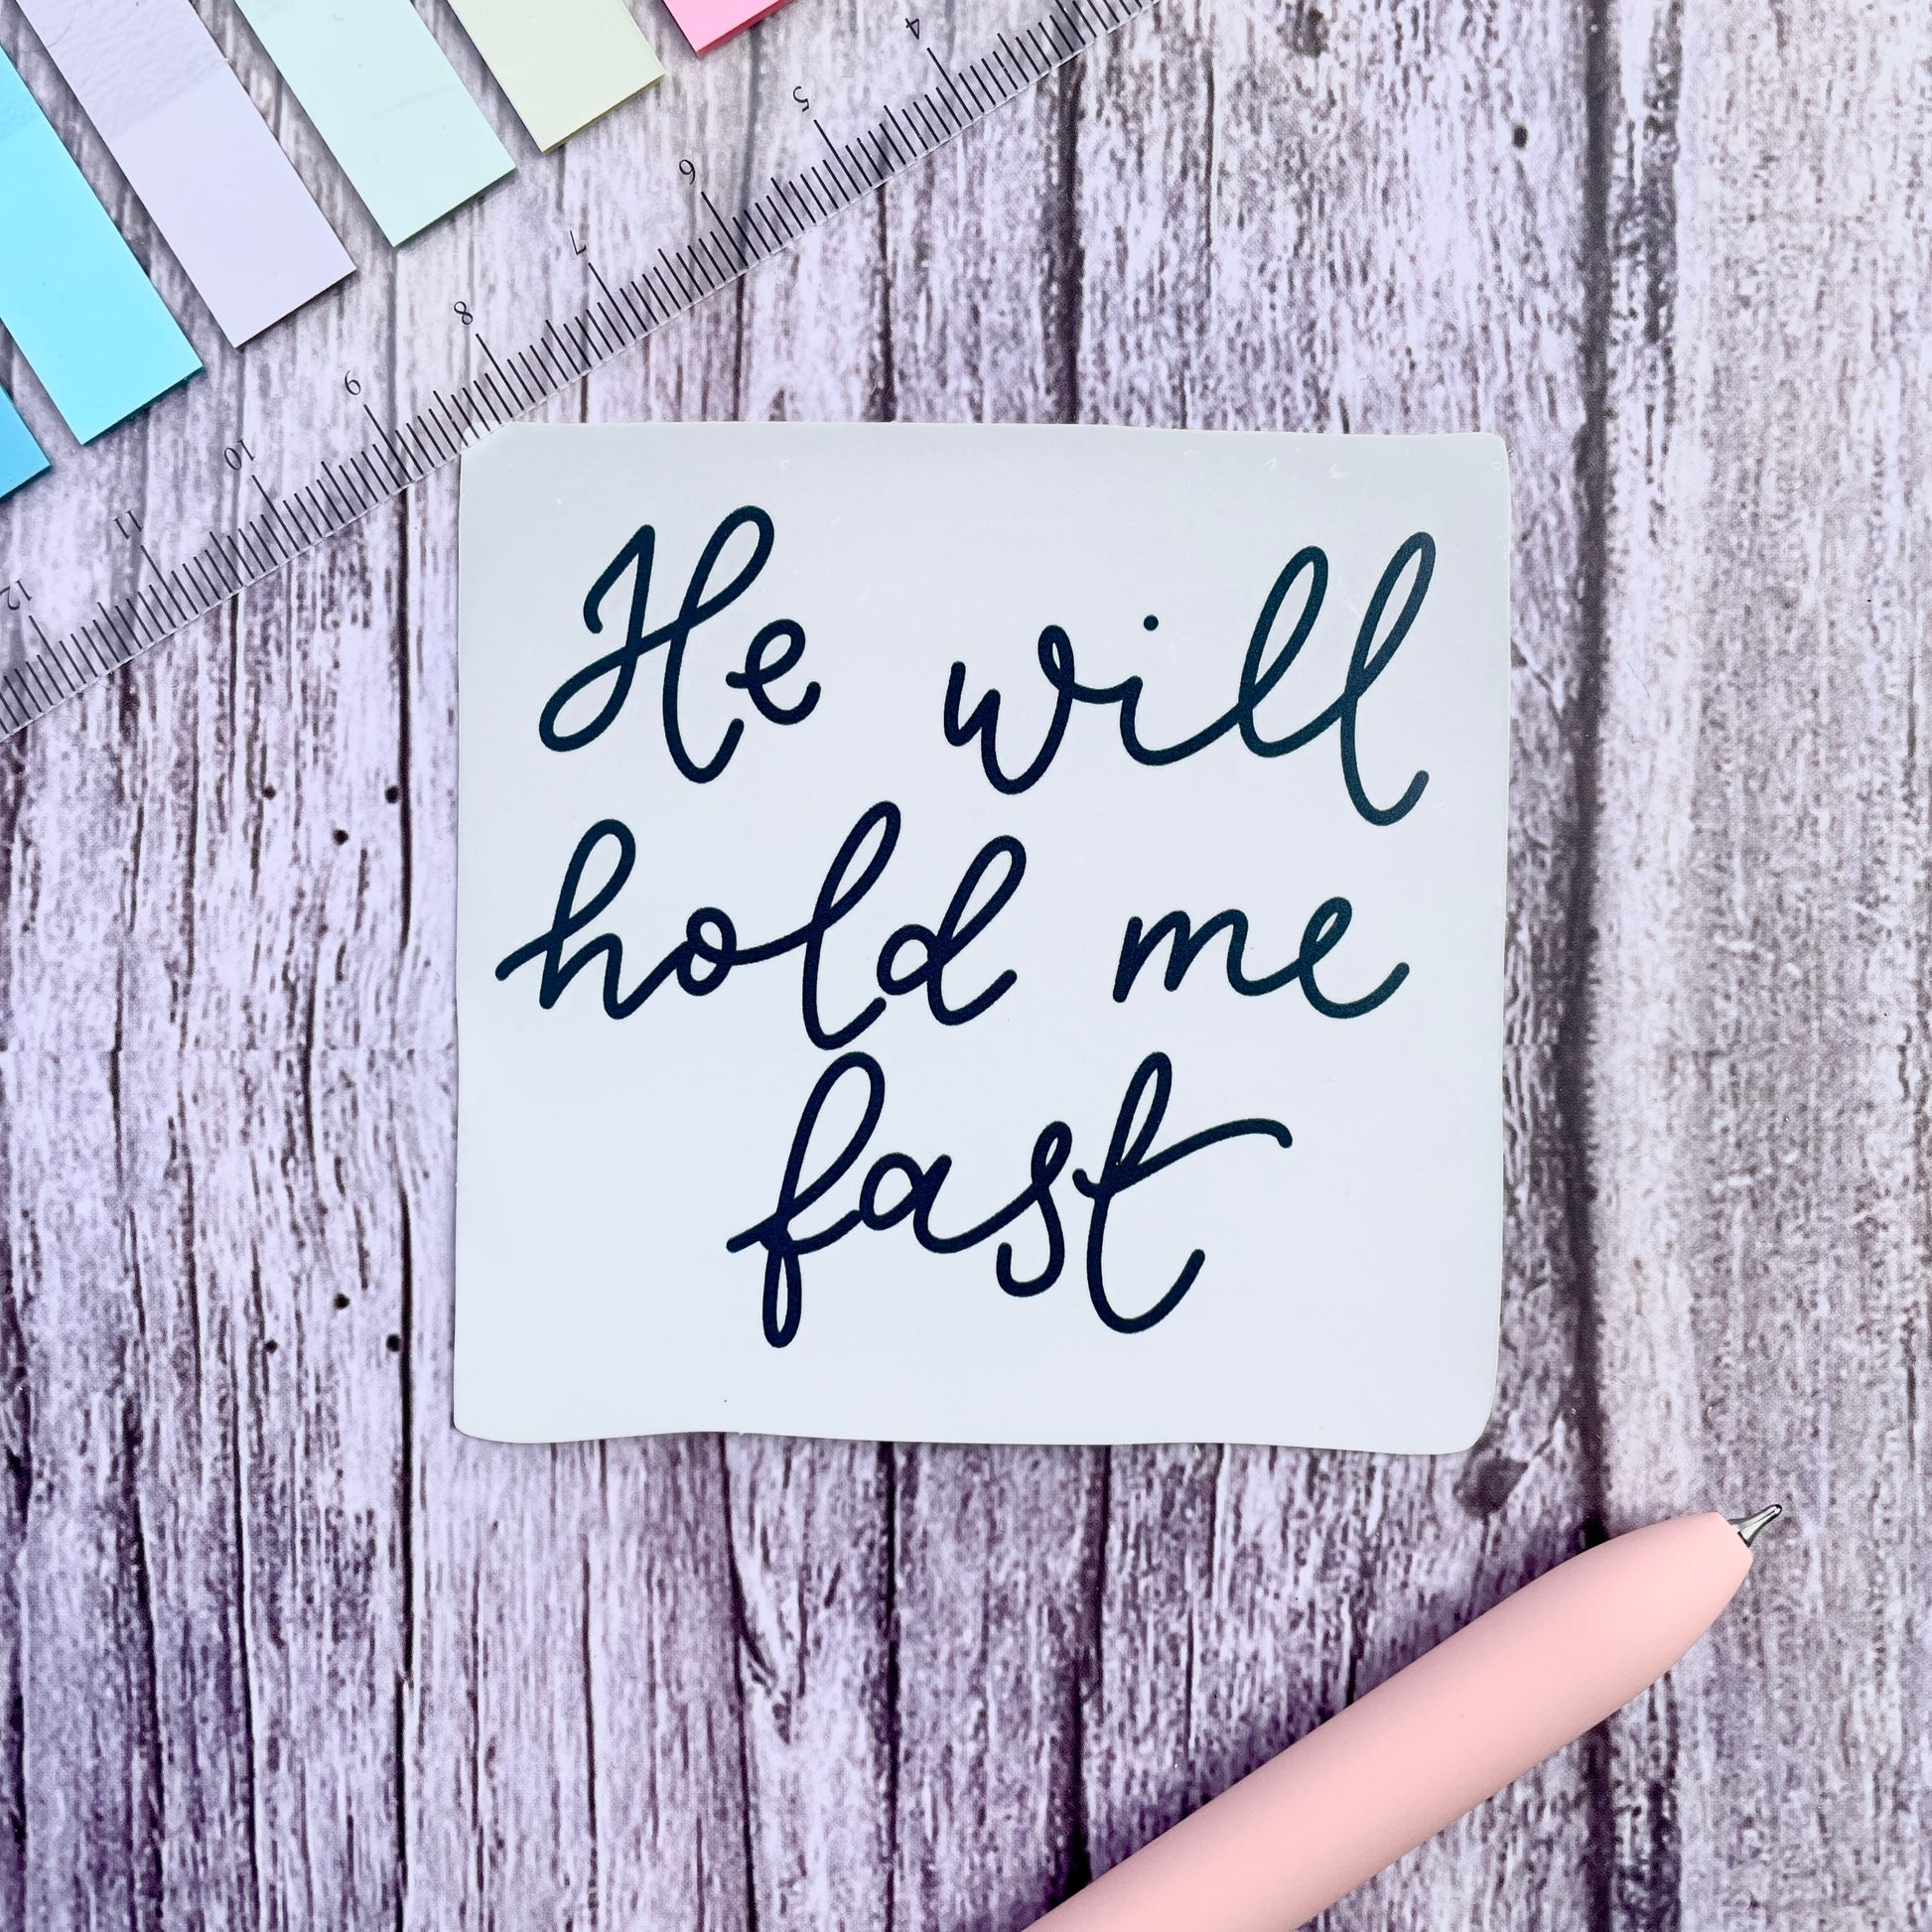 He will
hold me
fast
4
5
6
7
8
9
10
11
12